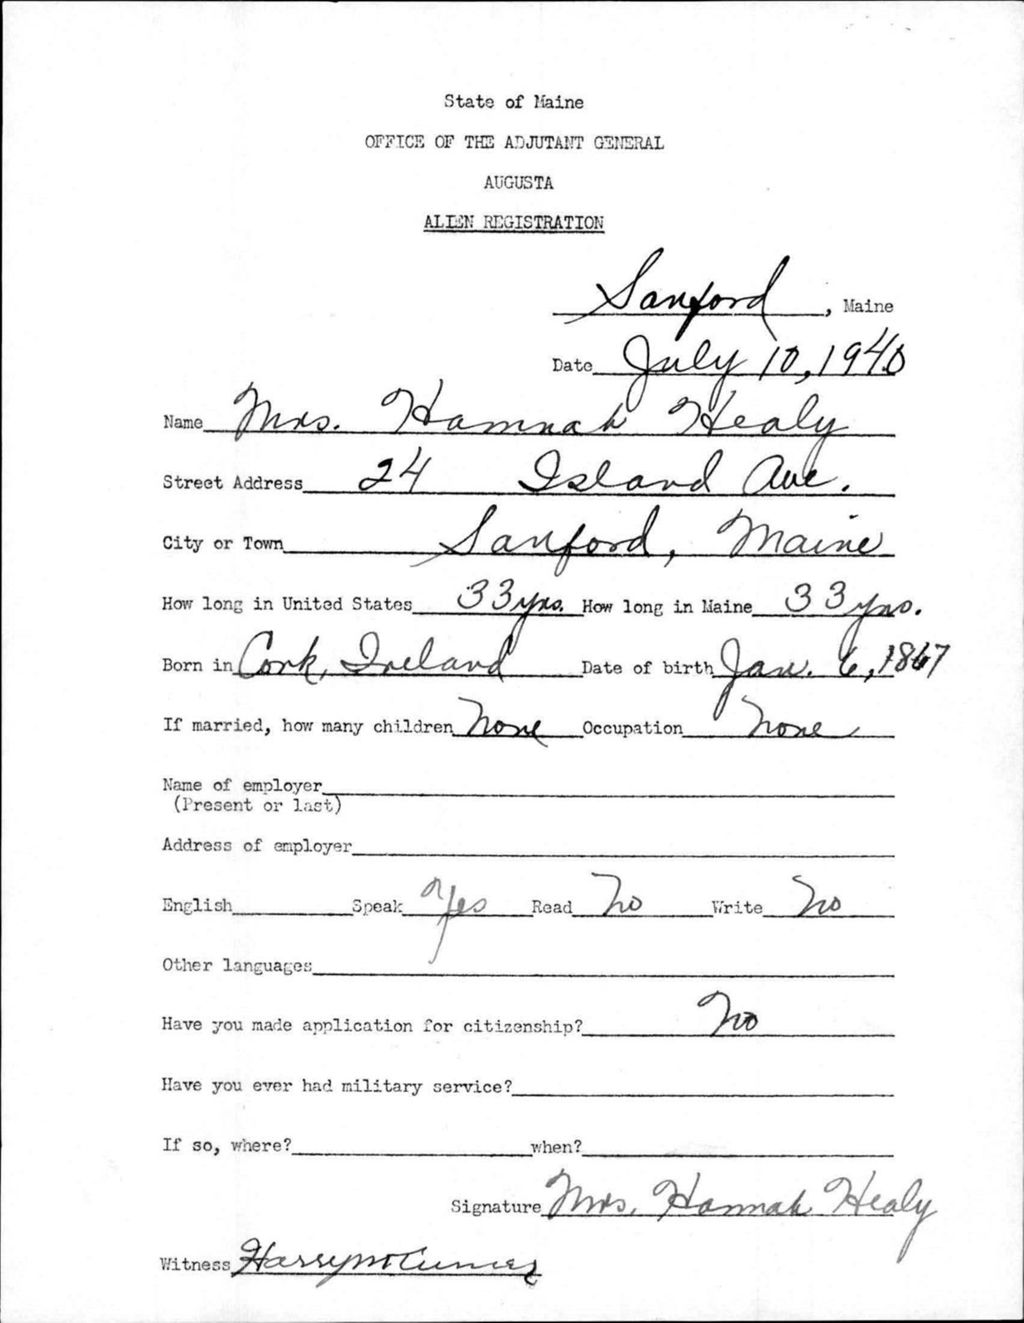 State of Maine
OFFICE OF THE ADJUTANT GENERAL
AUGUSTA
ALIEN REGISTRATION
Sanford, Maine
Date July 10, 1940
Name Mrs. Hannah Healy
Street Address 24 Island Ave.
City or Town Sanford, Maine
How long in United States 33 yrs. How long in Maine 33 yrs.
Born in Cork, Ireland Date of birth Jan. 6, 1867
If married, how many children None Occupation None
Name of employer
(Present or last)
Address of employer
English Speak Yes Read No Write No
Other languages
Have you made application for citizenship? No
Have you ever had military service?
If so, where? when?
Signature Mrs. Hannah Healy
Witness Harry